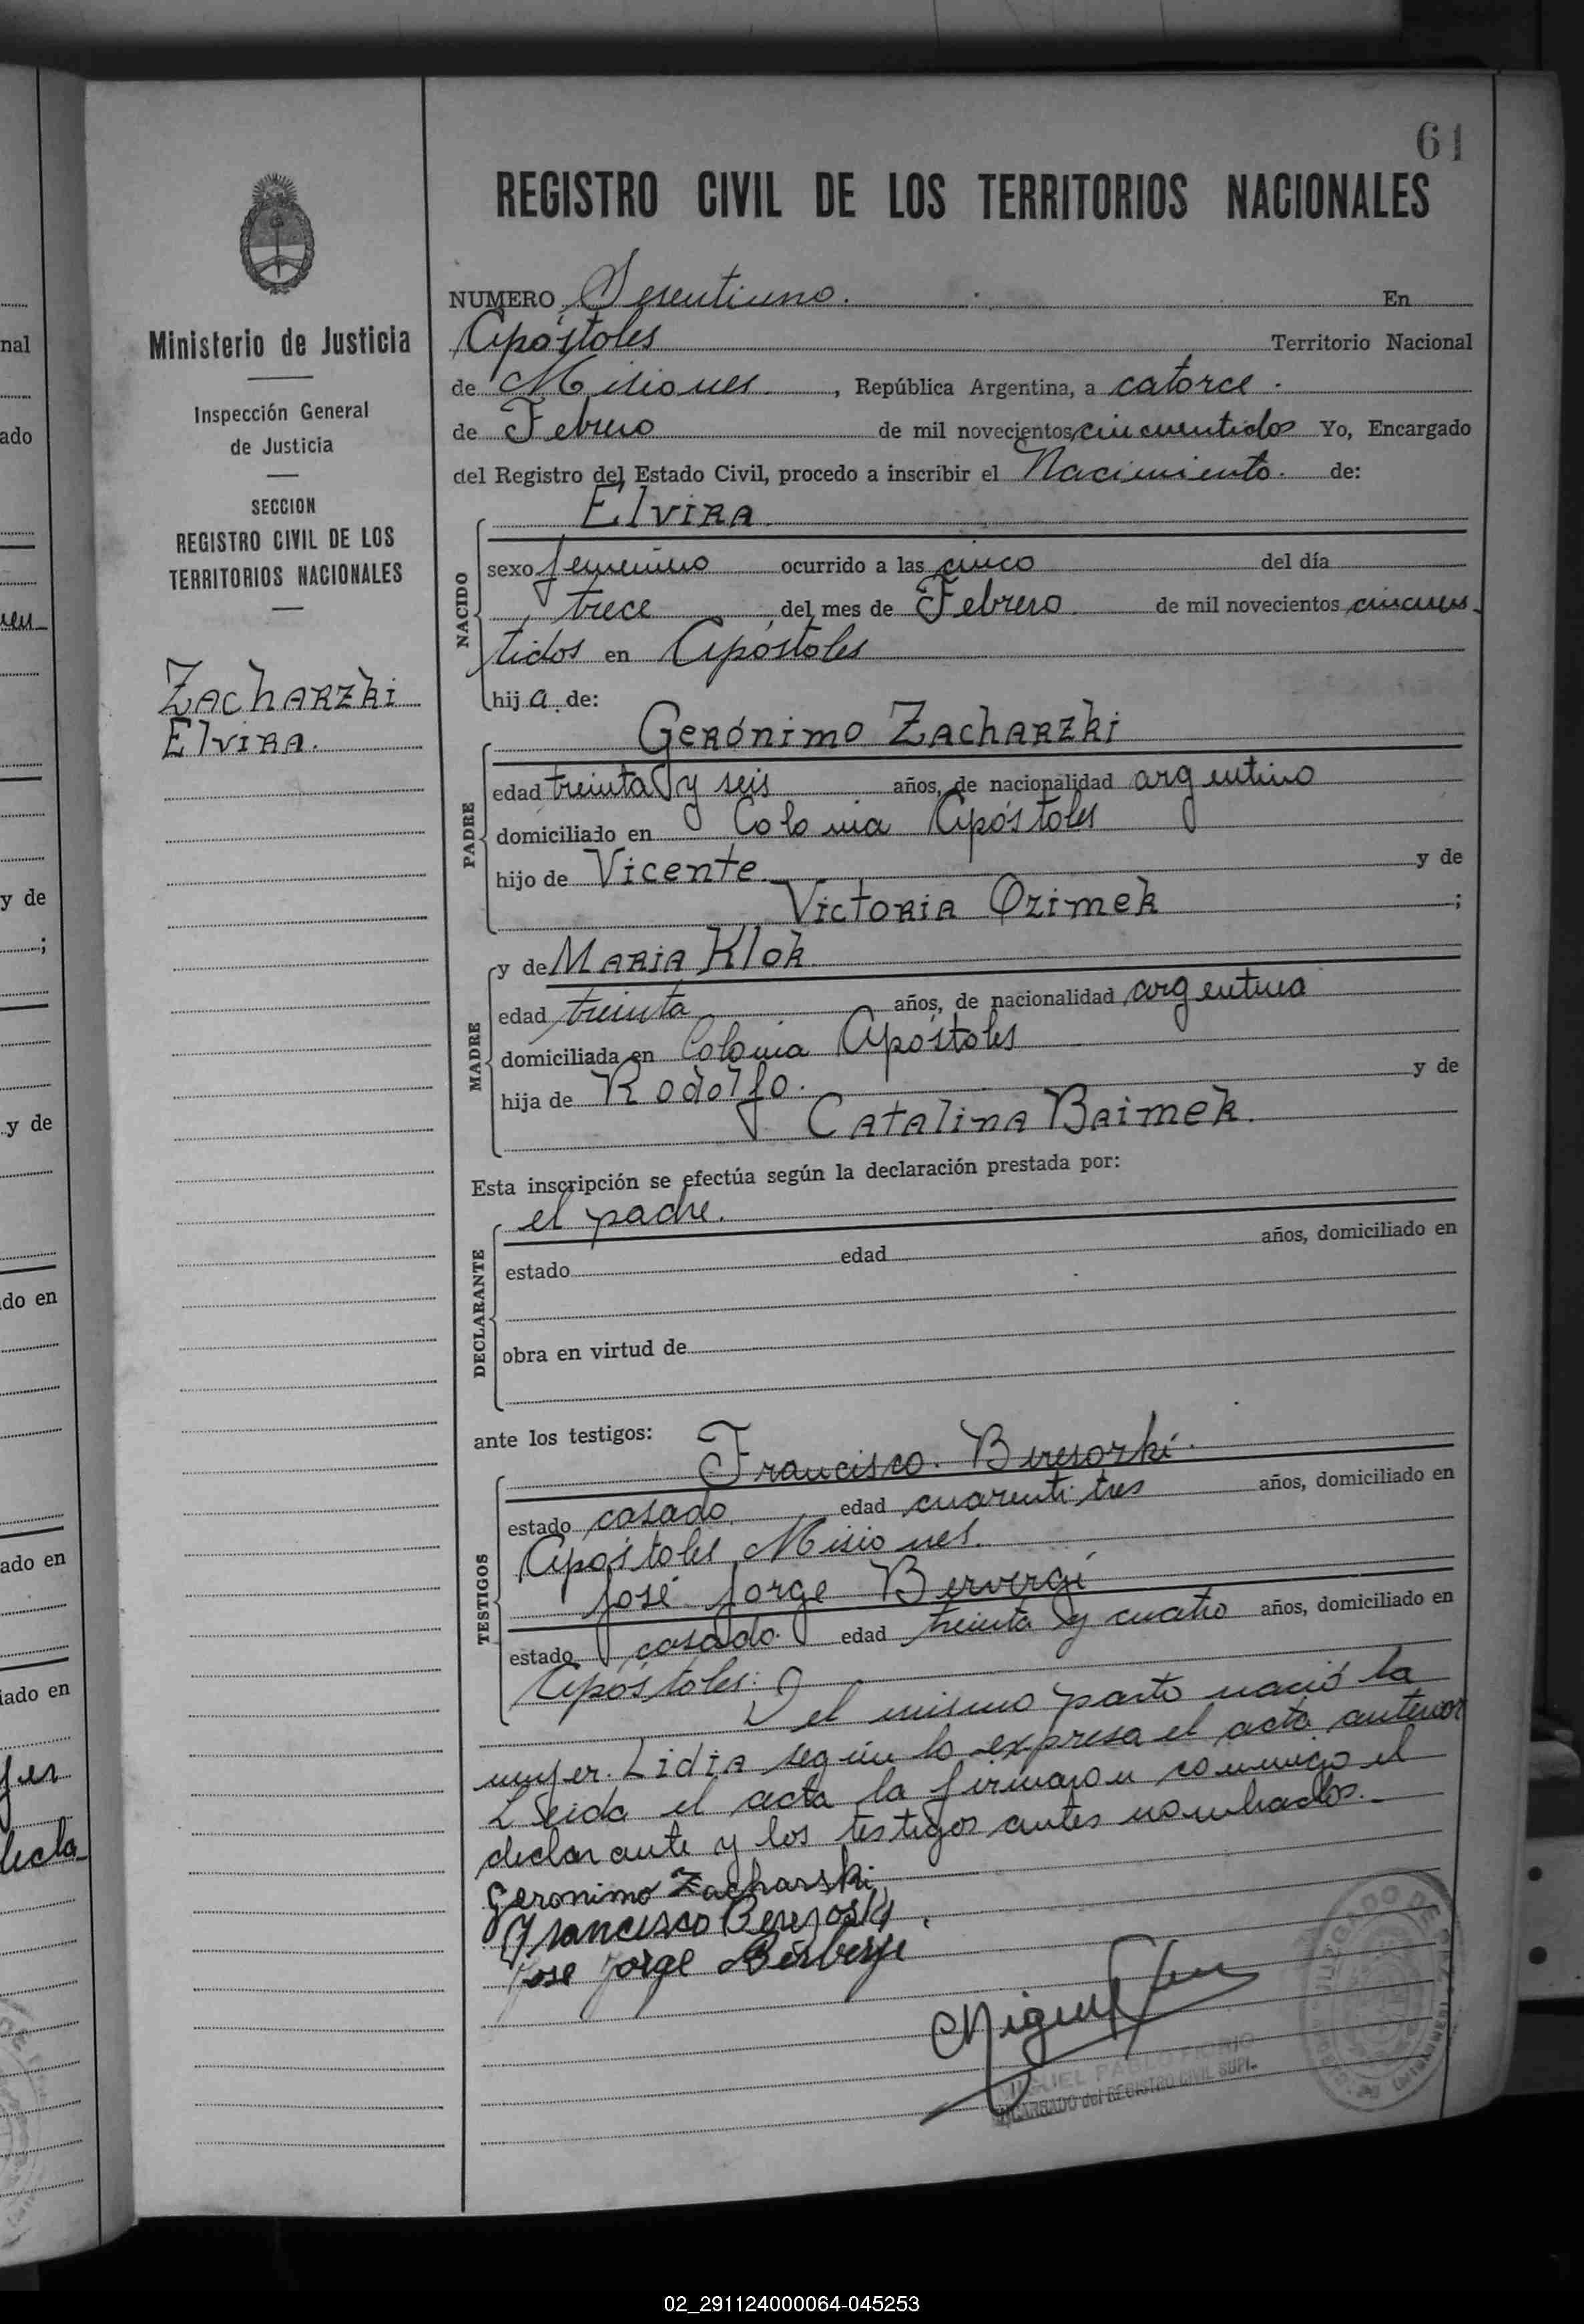 61
REGISTRO CIVIL DE LOS TERRITORIOS NACIONALES
Ministerio de Justicia
Inspección General
de Justicia
SECCION
REGISTRO CIVIL DE LOS
TERRITORIOS NACIONALES
Zacharzki
Elvira.
NUMERO Sesentiuno. En
Apóstoles Territorio Nacional
de Misiones, República Argentina, a catorce.
de Febrero de mil novecientos cincuentidos Yo, Encargado
del Registro del Estado Civil, procedo a inscribir el Nacimiento. de:
NACIDO
Elvira.
sexo femenino ocurrido a las cinco del día
trece del mes de Febrero de mil novecientos cincuen-
tidos en Apóstoles
hija de:
PADRE
Gerónimo Zacharzki
edad treinta y seis años, de nacionalidad argentino
domiciliado en Colonia Apóstoles
hijo de Vicente y de
Victoria Ozimek ;
MADRE
y de Maria Klok
edad treinta años, de nacionalidad argentina
domiciliada en Colonia Apóstoles
hija de Rodolfo. y de
Catalina Baimek.
Esta inscripción se efectúa según la declaración prestada por:
DECLARANTE
el padre.
estado edad años, domiciliado en
obra en virtud de
ante los testigos:
TESTIGOS
Francisco. Beresorki.
estado casado. edad cuarenti tres años, domiciliado en
Apóstoles Misiones.
José Jorge Bervergi
estado casado. edad treinta y cuatro años, domiciliado en
Apóstoles: Del mismo parto nació la
mujer. Lidia según lo expresa el acta anterior
Leida el acta la firmaron conmigo el
declarante y los testigos antes nombrados.-
Geronimo Zacharski
Francisco Berezoski.
Jose Jorge Berberje
Miguel
MIGUEL PABLO FIORIO
ENCARGADO del REGISTRO CIVIL SUPL.
nal
ado
y de
;
y de
do en
ado en
iado en
02_291124000064-045253